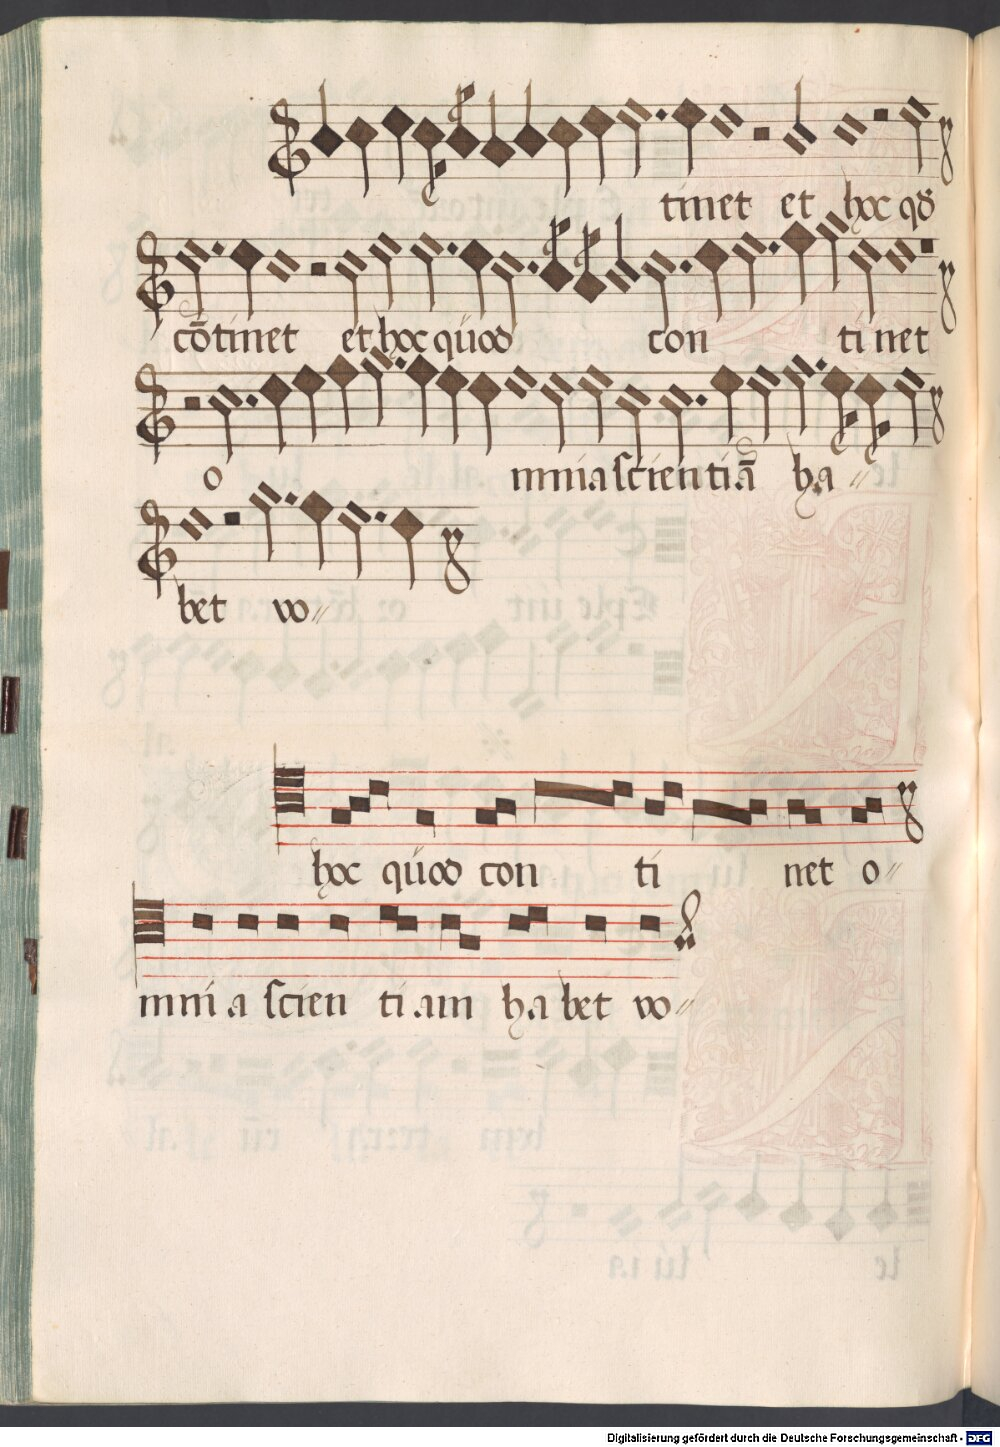 tinet et hoc qd
cōtinet et hoc quod con tinet
o mnia scientiā ha〃
bet vo〃
hoc quod con ti net o〃
mni a scien ti am ha bet vo〃
Digitalisierung gefördert durch die Deutsche Forschungsgemeinschaft - DFG